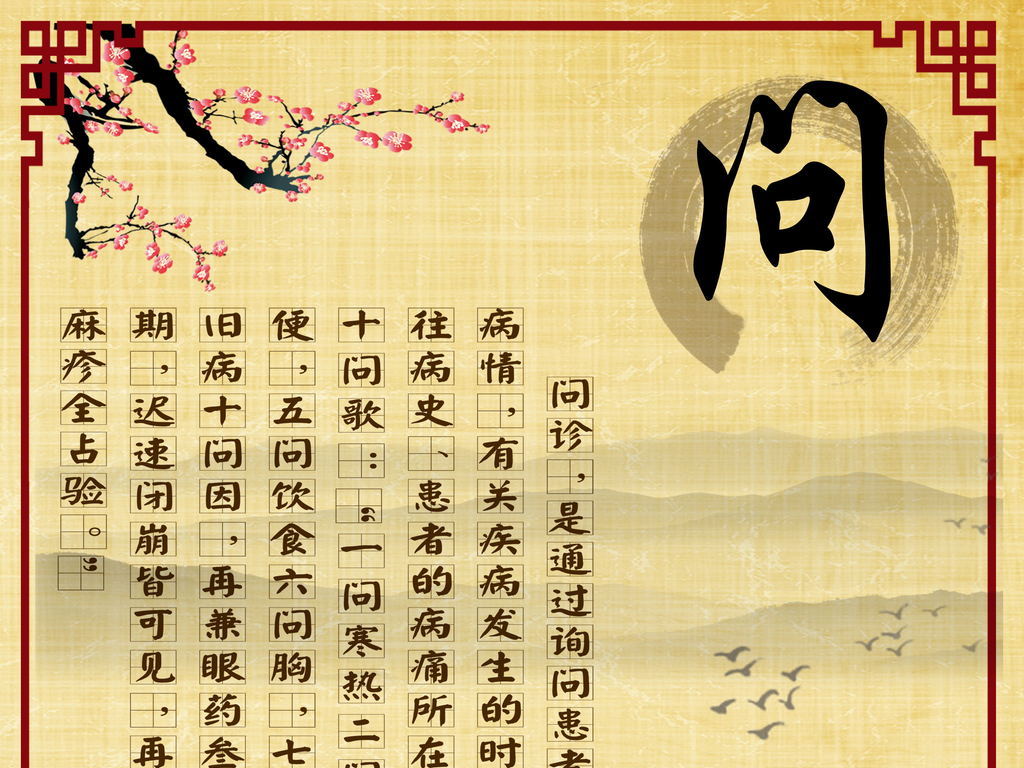 问
问诊，是通过询问患者
病情，有关疾病发生的时
往病史、患者的病痛所在
十问歌：“一问寒热二问
便，五问饮食六问胸，七
旧病十问因，再兼眼药叁
期，迟速闭崩皆可见，再
麻疹全占验。”